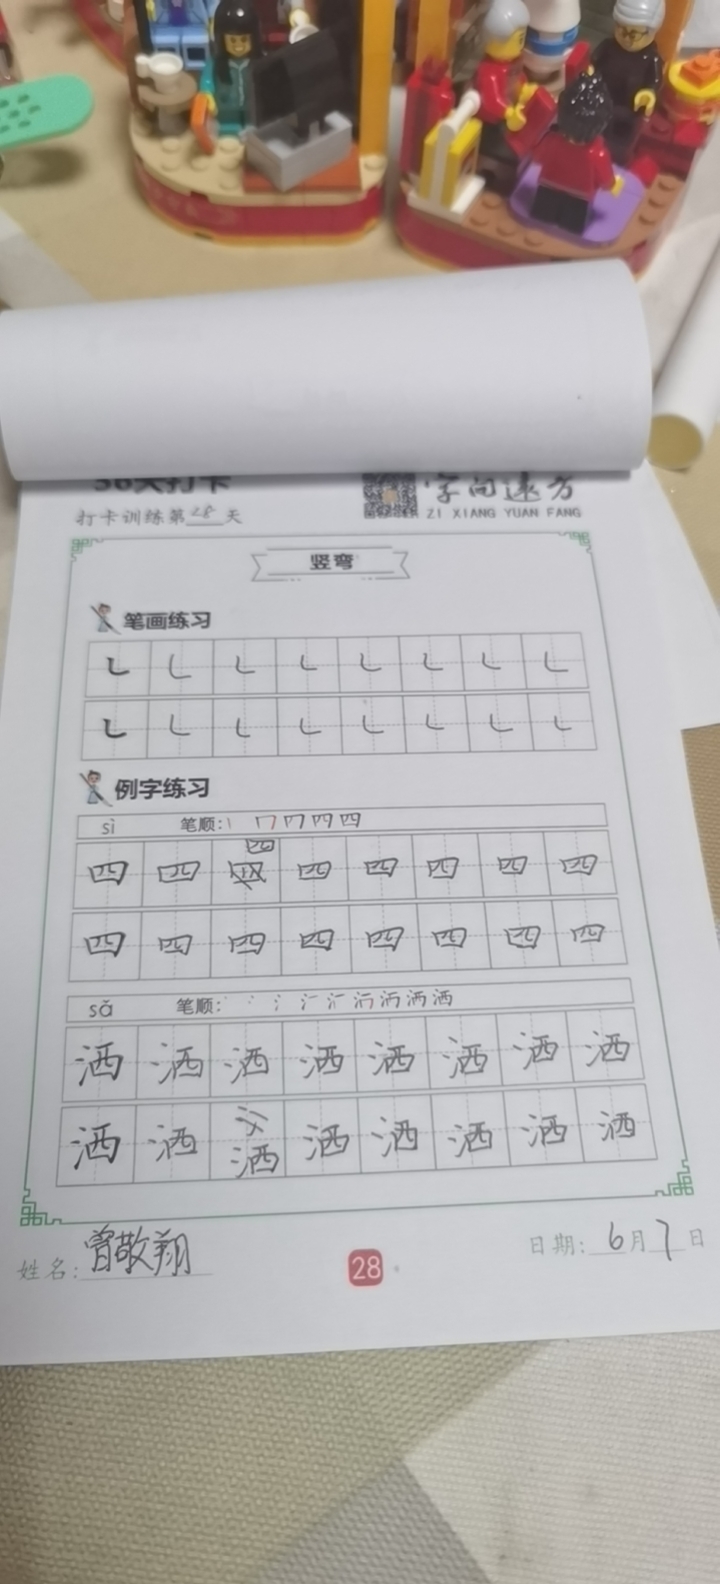 打卡训练第28天
字向远方
ZI XIANG YUAN FANG
竖弯
笔画练习
例字练习
sì 笔顺:
四 四 四 四 四 四 四 四 四
四 四 四 四 四 四 四 四
sǎ 笔顺:
洒 洒 洒 洒 洒 洒 洒 洒
洒 洒 洒 洒 洒 洒 洒 洒
姓名: 曾敬翔
28
日期: 6月7日